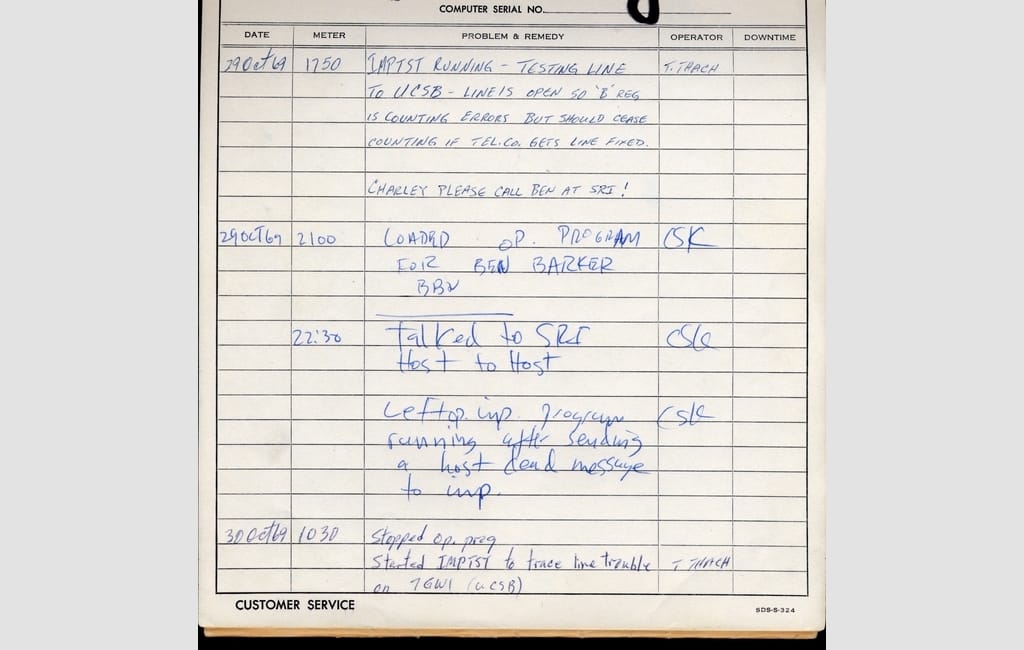 COMPUTER SERIAL NO.
DATE METER PROBLEM & REMEDY OPERATOR DOWNTIME
29Oct69 1750 IMPTST RUNNING - TESTING LINE T. THACH
TO UCSB - LINE IS OPEN SO 'B' REG
IS COUNTING ERRORS BUT SHOULD CEASE
COUNTING IF TEL.CO. GETS LINE FIXED.
CHARLEY PLEASE CALL BEN AT SRI !
29OCT69 2100 LOADED OP. PROGRAM CSK
FOR BEN BARKER
BBN
22:30 Talked to SRI CSK
Host to Host
Left op. imp. program CSK
running after sending
a host dead message
to imp.
30Oct69 1030 Stopped op. prog
Started IMPTST to trace line trouble T THACH
on (UCSB)
CUSTOMER SERVICE SDS-S-324